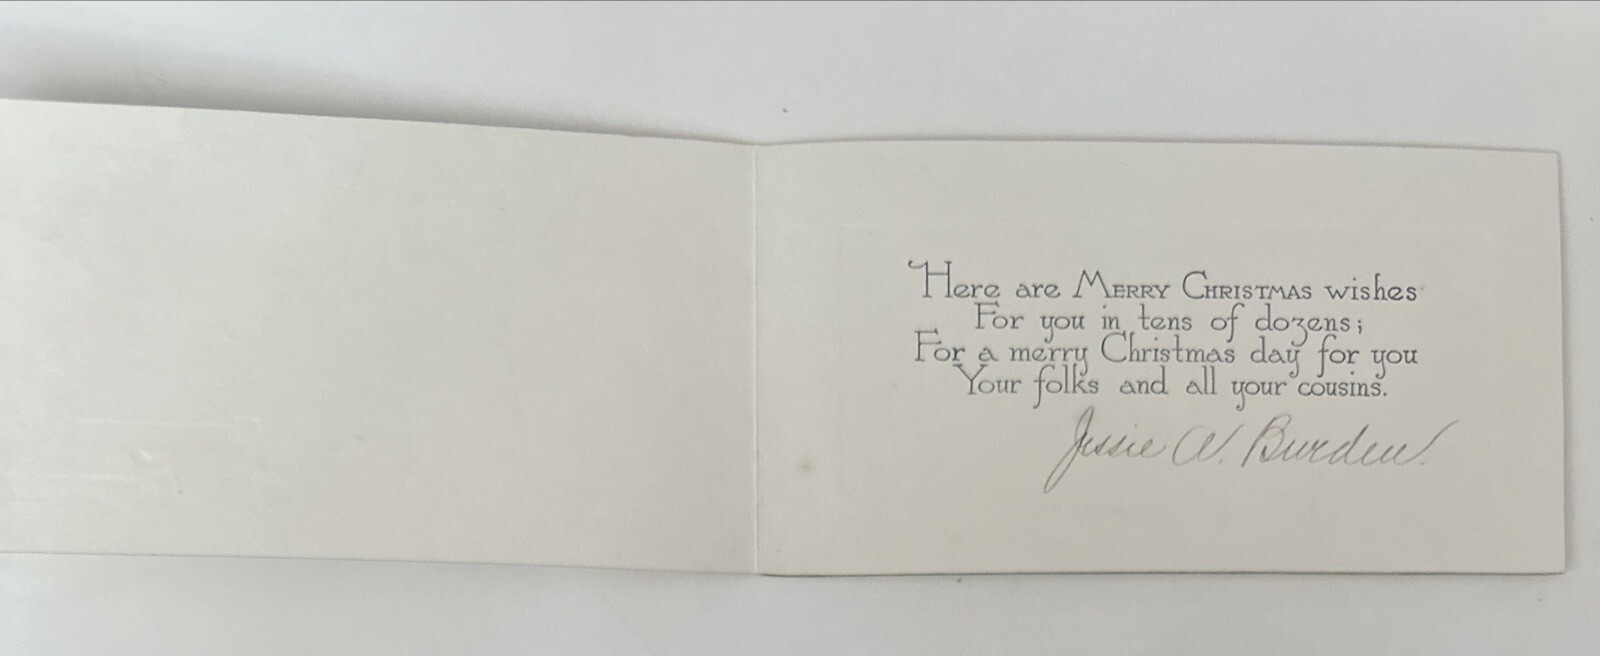 Here are MERRY CHRISTMAS wishes
For you in tens of dozens;
For a merry Christmas day for you
Your folks and all your cousins.
Jessie W. Burden.